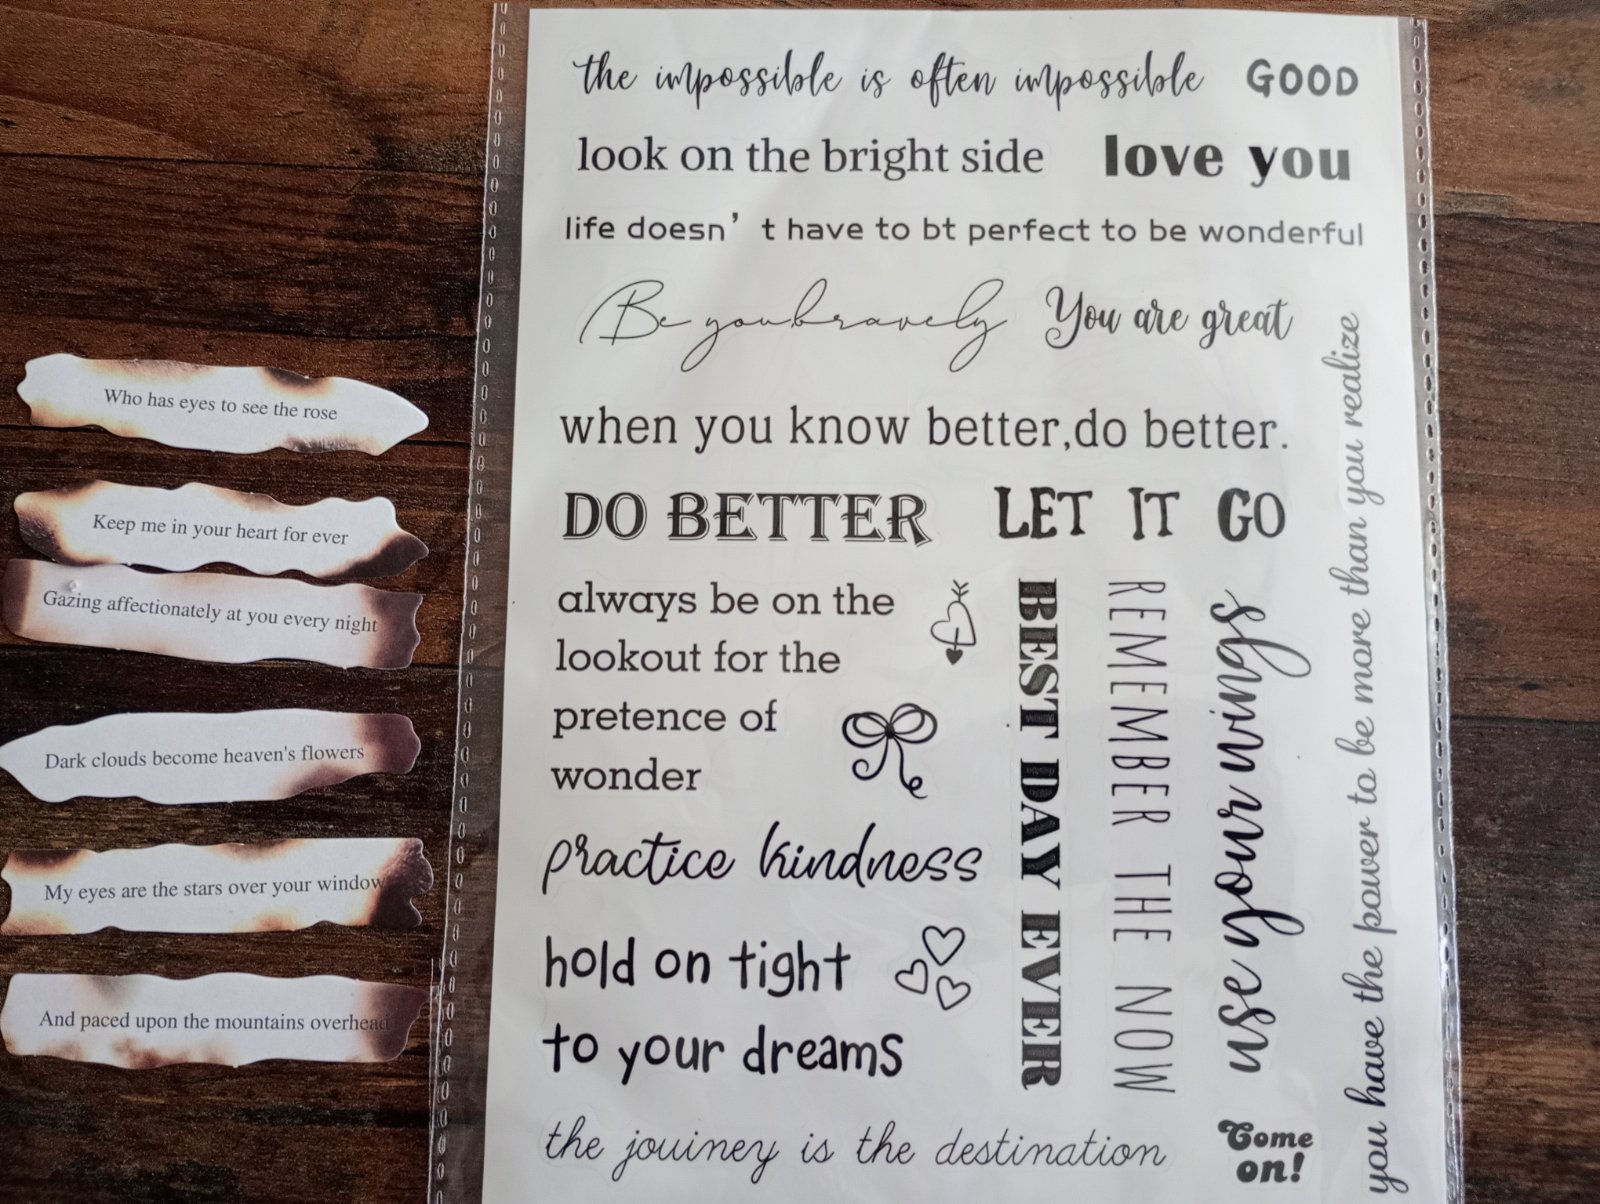 Who has eyes to see the rose
Keep me in your heart for ever
Gazing affectionately at you every night
Dark clouds become heaven's flowers
My eyes are the stars over your window
And paced upon the mountains overhead
the impossible is often impossible
GOOD
look on the bright side
love you
life doesn’t have to bt perfect to be wonderful
Be you bravely
You are great
when you know better,do better.
DO BETTER
LET IT GO
always be on the
lookout for the
pretence of
wonder
practice kindness
hold on tight
to your dreams
the jouiney is the destination
BEST DAY EVER
REMEMBER THE NOW
use your wings
Come
on!
you have the power to be more than you realize